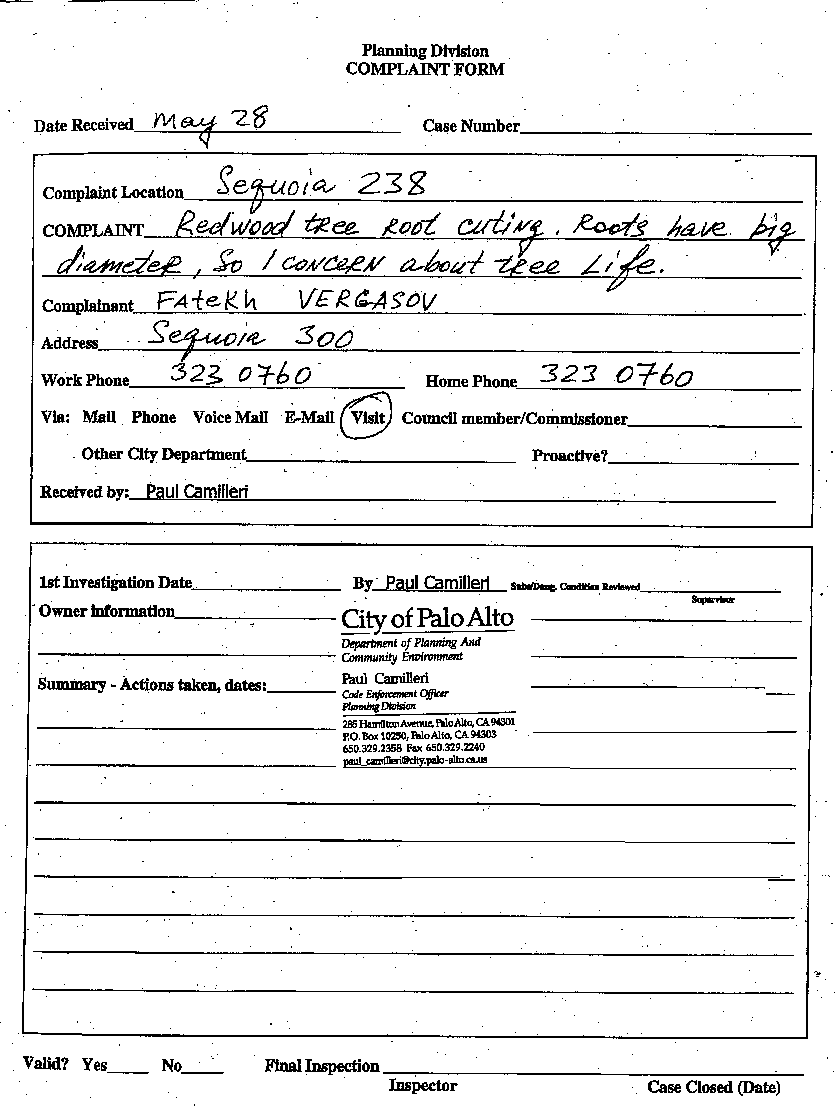 Planning Division
COMPLAINT FORM
Date Received May 28 Case Number
Complaint Location Sequoia 238
COMPLAINT Redwood tree root cuting. Roots have big
diameter, So I concern about tree Life.
Complainant FAtekh VERGASOV
Address Sequoia 300
Work Phone 323 0760 Home Phone 323 0760
Via: Mail Phone Voice Mail E-Mail Visit Council member/Commissioner
Other City Department Proactive?
Received by: Paul Camilleri
1st Investigation Date By Paul Camilleri Subs/Dang. Condition Reviewed
Supervisor
Owner information
City of Palo Alto
Department of Planning And
Community Environment
Summary - Actions taken, dates:
Paul Camilleri
Code Enforcement Officer
Planning Division
285 Hamilton Avenue, Palo Alto, CA 94301
P.O. Box 10250, Palo Alto, CA 94303
650.329.2358 Fax 650.329.2240
paul_camilleri@city.palo-alto.ca.us
Valid? Yes No Final Inspection
Inspector Case Closed (Date)